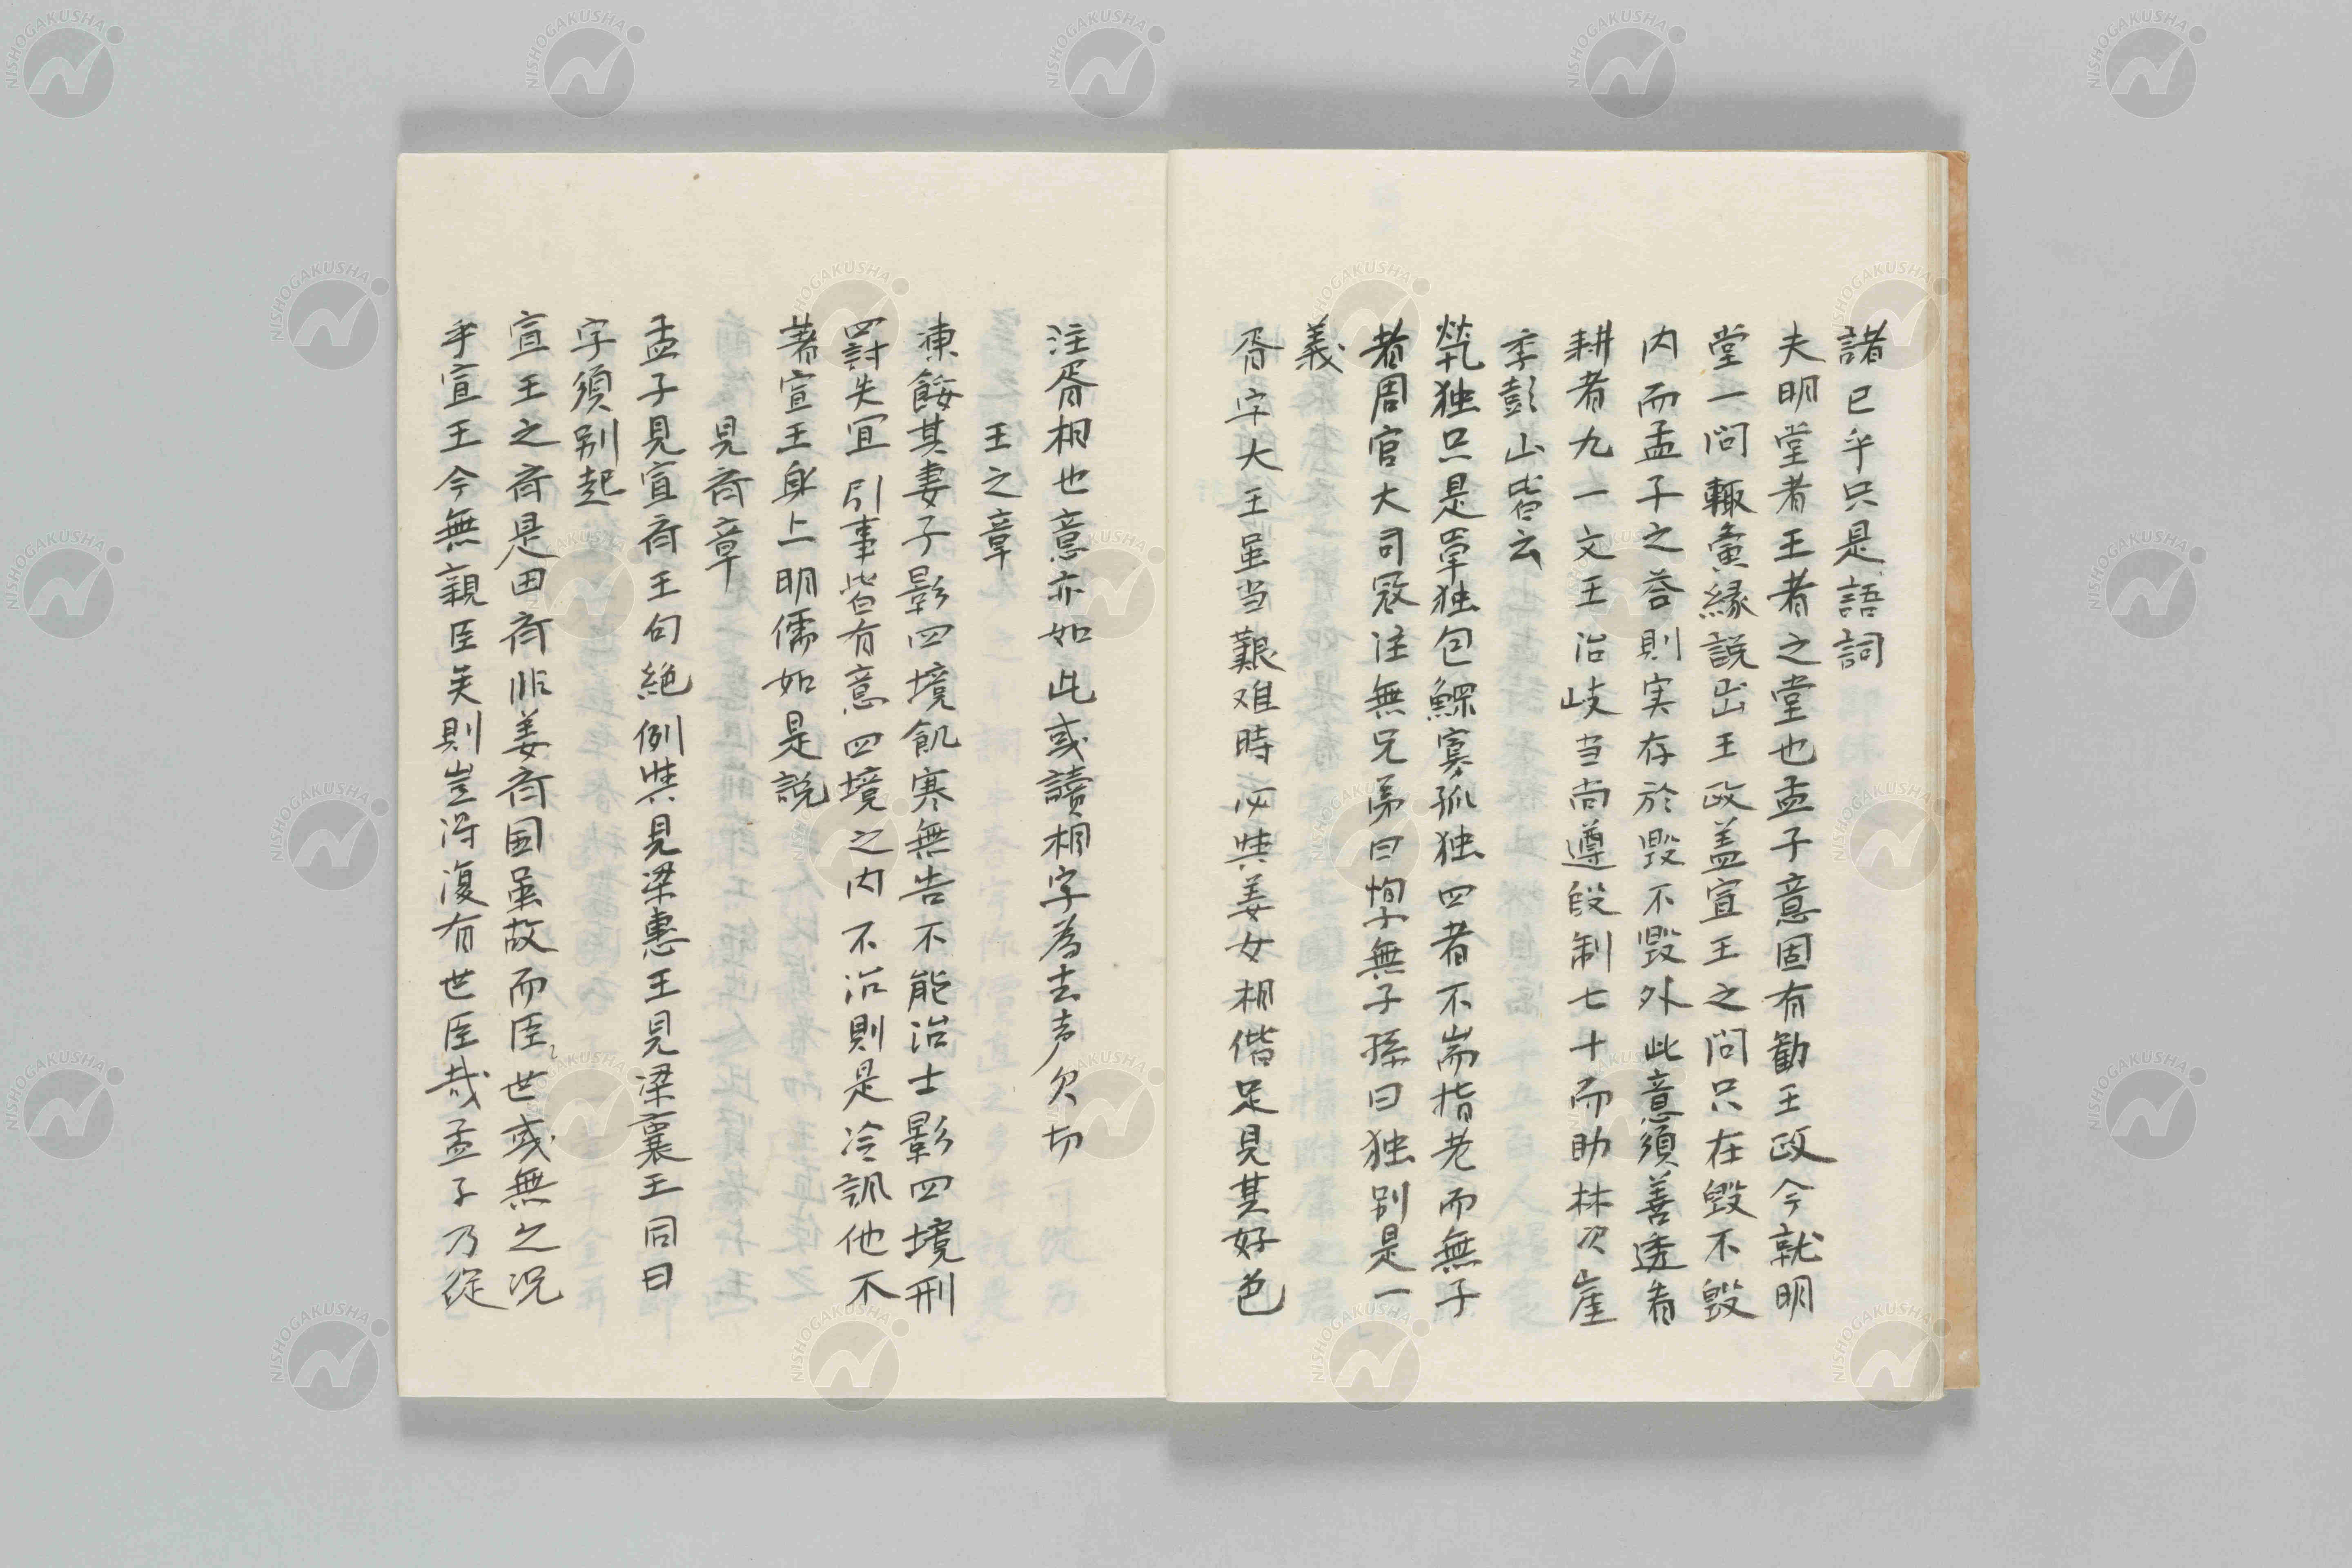 諸已乎只是語詞
夫明堂者王者之堂也孟子意固有勧王政今就明
堂一問輙夤縁説出王政盖宣王之問只在毀不毀
内而孟子之荅則実存於毀不毀外此意須善透看
耕者九一文王治岐当尚遵殷制七十而助林次崖
季彭山皆云
煢独只是単独包鰥寡孤独四者不耑指老而無子
者周官大司寇注無兄弟曰惸無子孫曰独別是一
義
胥字大王虽当艱难時必㒜姜女相偕足見其好色
注胥相也意亦如此或讀相字為去声欠切
王之章
凍餒其妻子影四境飢寒無告不能治士影四境刑
罸失宜引事皆有意四境之内不治則是冷諷他不
著宣王身上明儒如是説
見斉章
孟子見宣斉王句絶例㒜見梁惠王見梁襄王同曰
字須別起
宣王之斉是田斉非姜斉国虽故而臣〻世或無之况
乎宣王今無親臣矣則豈得復有世臣哉孟子乃從
NISHOGAKUSHA